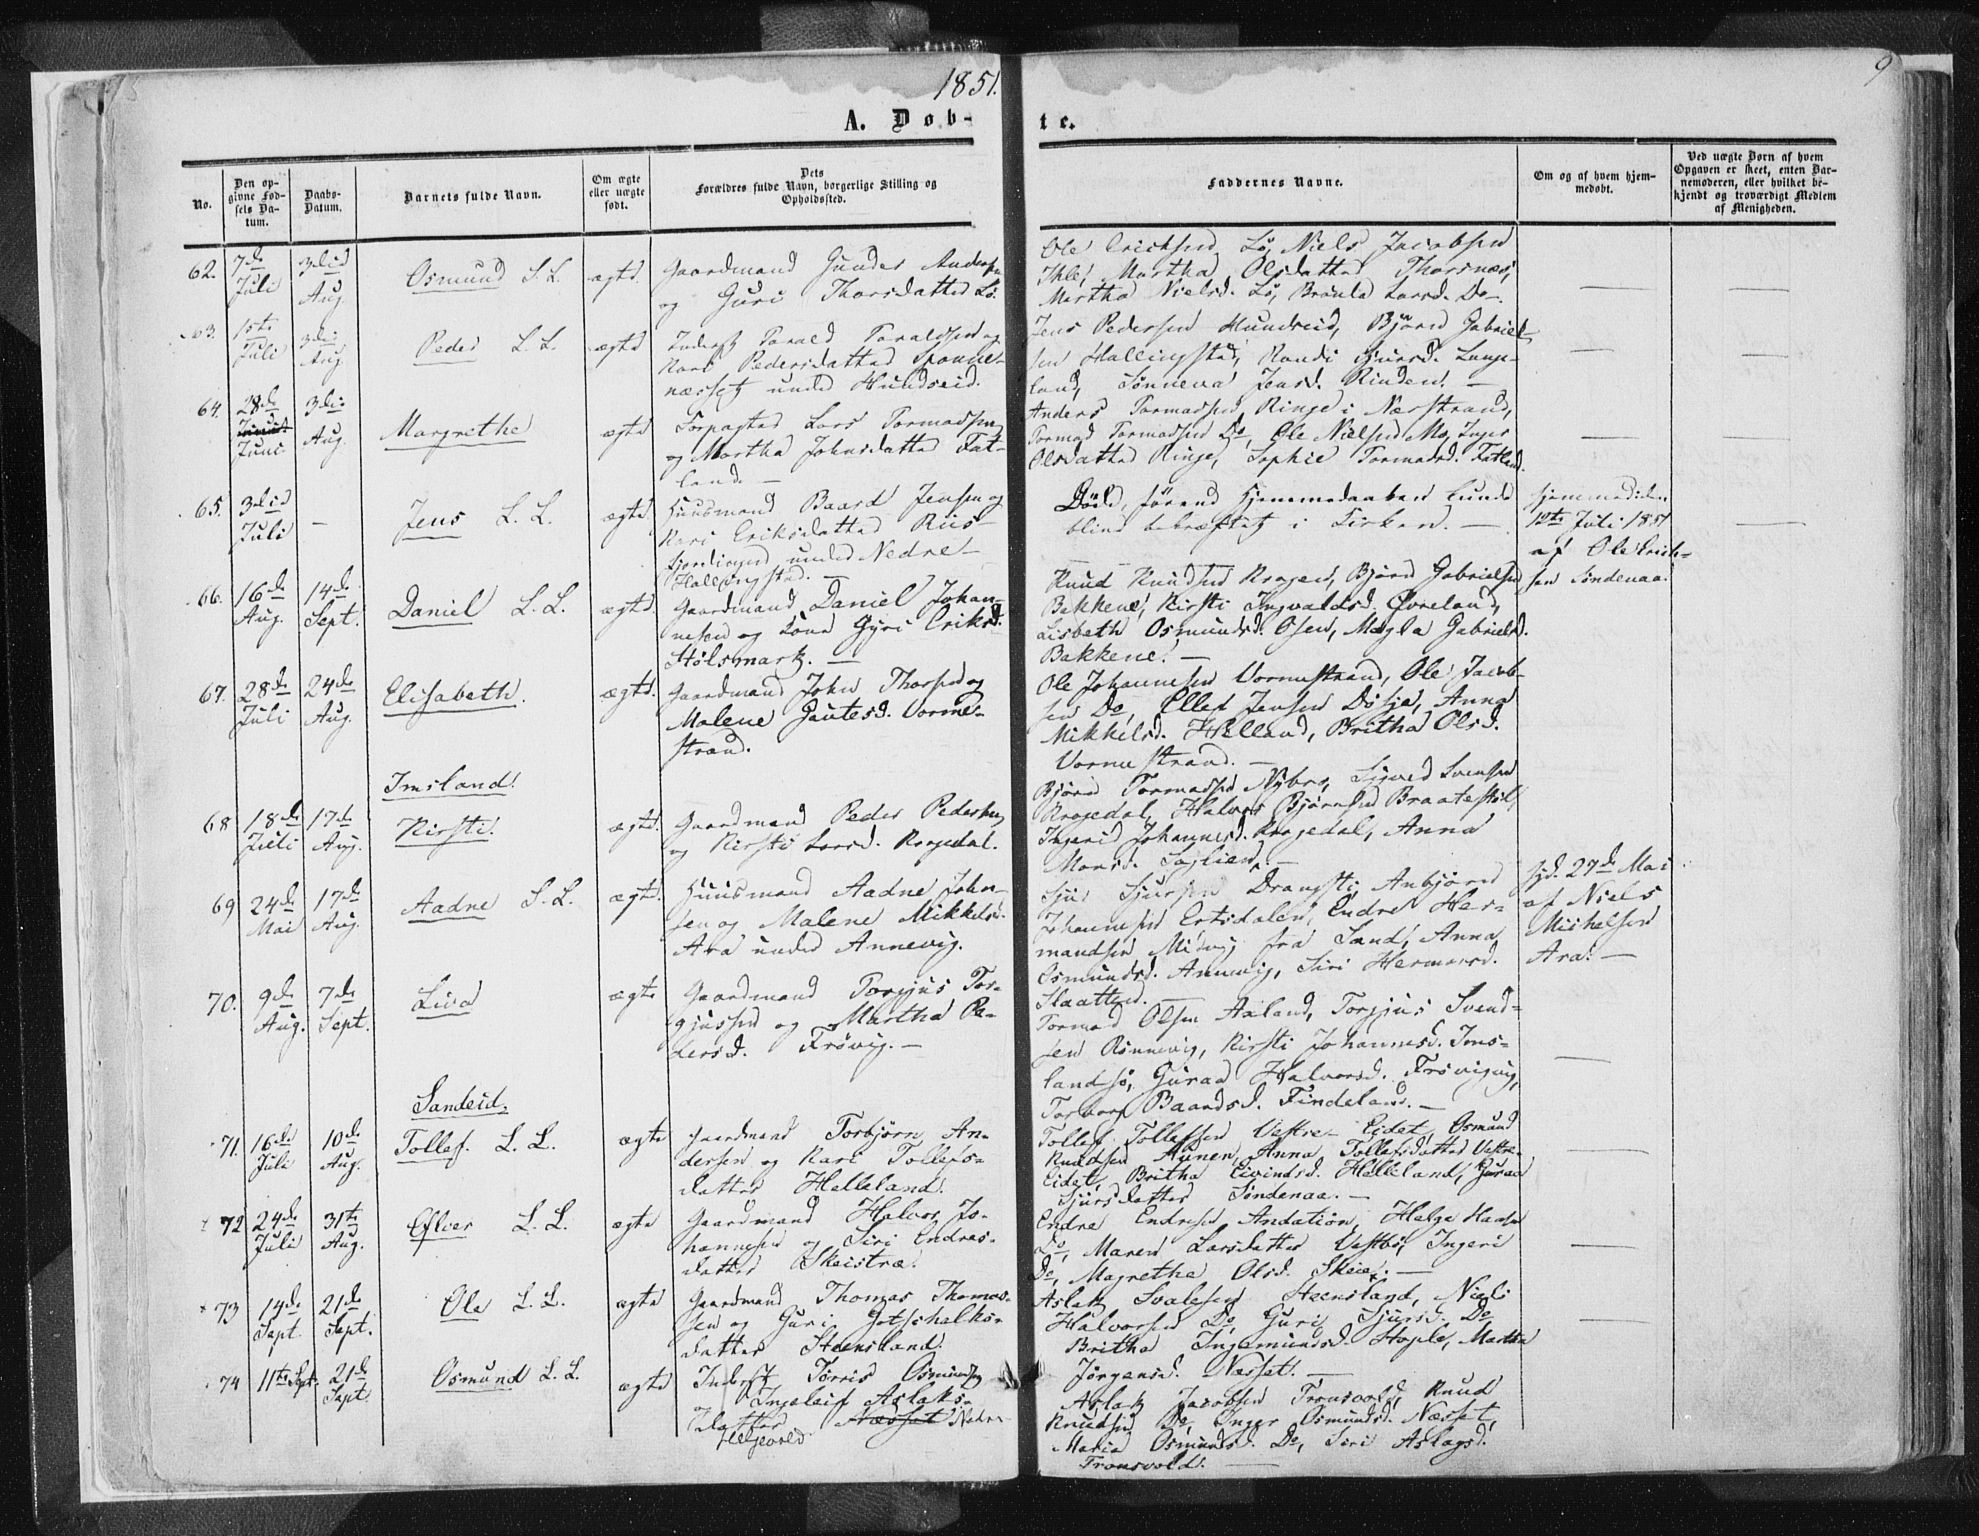 1851.
9
A. Døb-
te.
No.
Den op-
givne Fød-
sels Da-
tum.
Daabs-
Datum.
Barnets fulde Navn.
Om ægte
eller uægte
født.
Dets
Forældres fulde Navn, borgerlige Stilling og
Opholdssted.
Faddernes Navne.
Om og af hvem hjem-
medøbt.
Ved uægte Børn af hvem
Opgaven er skeet, enten Bar-
nemoderen, eller hvilket be-
kjendt og troværdigt Medlem
af Menigheden.
62. 7de Juli 3die Aug. Osmund L. L. ægte
Gaardmand Gunder Anders
og Guri Thorsdatter Lø.
Ole Ericksen Lø, Niels Jacobsen
Ihle, Martha Olsdatter Thorsnæs,
Martha Nielsd. Lø, Larsd. Do.
63. 15de Juli 3die Aug. Peder L. L. ægte
Inderst Torald Toraldsen og
Kari Pedersdatter
næsset under Hundseid.
Jens Pedersen Hundseid, Bjørn Gabriel-
sen Hallingstad, Randi Lunge-
land, Sønneva Jensd. Rinden. —
64. 28de Juni 3die Aug. Margrethe ægte
Lars Tormodsen
og Martha Johnsdatter Fat-
land. —
Anders Tormodsen Ringe i Nærstrand,
Tormod Tormodsen Do, Ole Nielsen Mo, Inger
Olsdatter Ringe, Sophie Tormodsd. Fatland.
65. 3die Juli — Jens L. L. ægte
Huusmand Baard Jensen og
Kari Eriksdatter Riis-
under Nedre
Hallingstad. —
Død, førend Hjemmedaaben kunde
blive bekræftet i Kirken. —
hjemmed. den
12te Juli 1851
af Ole Erick-
sen Søndenaa.
66. 16de Aug. 14de Sept. Daniel L. L. ægte
Gaardmand Daniel Johan-
nesen og Kone Gyri Eriksd.
Stølsmark. —
Knud Knudsen Kragen, Bjørn Gabrielsen
Bakkene, Kirsti Ingvaldsd. Øvreland,
Lisbeth Osmundsd. Osen, Magla Gabrielsd.
Bakkene. —
67. 28de Juli 24de Aug. Elisabeth. ægte.
Gaardmand John Thorsen og
Malene Gautesd. Vorme-
strand.
Ole Johannesen Vormestrand, Ole Jacob-
sen Do, Ellef Jensen Døsje, Anna
Mikkelsd. Helland, Britha Olsd.
Vormestrand. —
Imsland.
68 18de Juli 17de Aug. Kirsti. ægte.
Gaardmand Peder Pedersen
og Kirsti Larsd. Rogedal.
Bjørn Tormodsen Nybro, Sigved Svensen
Rogedal, Halvor Bjørnsen Braatestøl,
Ingerid Johannesd. Rogedal, Anna
Monsd. —
69 24de Mai 17de Aug. Aadne L. L. ægte.
Huusmand Aadne John-
sen og Malene Mikkelsd.
Ara under Annevig.
Sjur Sjursen Drangsti, Anbjørn
Johannesen Ertsdalen, Endre Her-
mandsen fra Sand, Anna
Osmundsd. Annevig, Siri Hermansd.
Slaatten. —
hjd. 27de Mai
af Niels
Michelsen
Ara. —
70. 9de Aug. 7de Sept. Liva ægte
Gaardmand Torgjus Tor-
gjussen og Martha Pe-
dersd. Frøvig. —
Tormod Olsen Aaland, Torgjus Svend-
sen Rønnevig, Kirsti Johannesd. Ims-
landsø, Guraa Halvorsd. Frøvigvig,
Torborg Baardsd. Findeland. —
Sandeid.
71. 16de Juli 10de Aug. Tollef. L. L. ægte
Gaardmand Torbjørn An-
dersen og Kari Tollefs-
datter Helleland.
Tollef Tollefsen Vestre Eidet, Osmund
Knudsen Aunen, Anna Tollefsdatter Vestre
Eidet, Britha Eivindsd. Helleland, Guraa
Sjursdatter Søndenaa. —
72 24de Juli 31te Aug. Elver L. L. ægte
Gaardmand Halvor Jo-
hannesen og Siri Endres-
datter Skeistræ.
Endre Endresen Andation, Helge Hansen
Do, Maren Larsdatter Vestbø, Ingeri
Do, Magrethe Olsd. Skeie. —
73 14de Sept. 21de Sept. Ole L. L. ægte
Gaardmand Thomas Thomas-
sen og Guri Gotschalks-
datter Steensland.
Aslak Svalesen Steensland, Niels
Halvorsen Do, Guri Sjursd. Do
Britha Ingemundsd. Hople, Martha
Jørgensd. Næsset. —
74 11te Sept. 21de Sept. Osmund L. L. ægte
Inderst Tørris Osmundsen
og Ingeleif Aslaks-
datter Næsset Nedre
Helgevold.
Aslak Jacobsen Tronsvold, Knud
Knudsen Do, Inger Osmundsd. Næsset,
Maria Osmundsd. Do, Siri Aslagsd.
Tronsvold. —